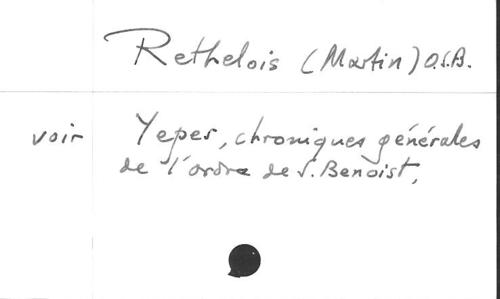 Rethelois (Martin) O.S.B.
voir Yepes, chroniques générales
de l'ordre de S. Benoist,